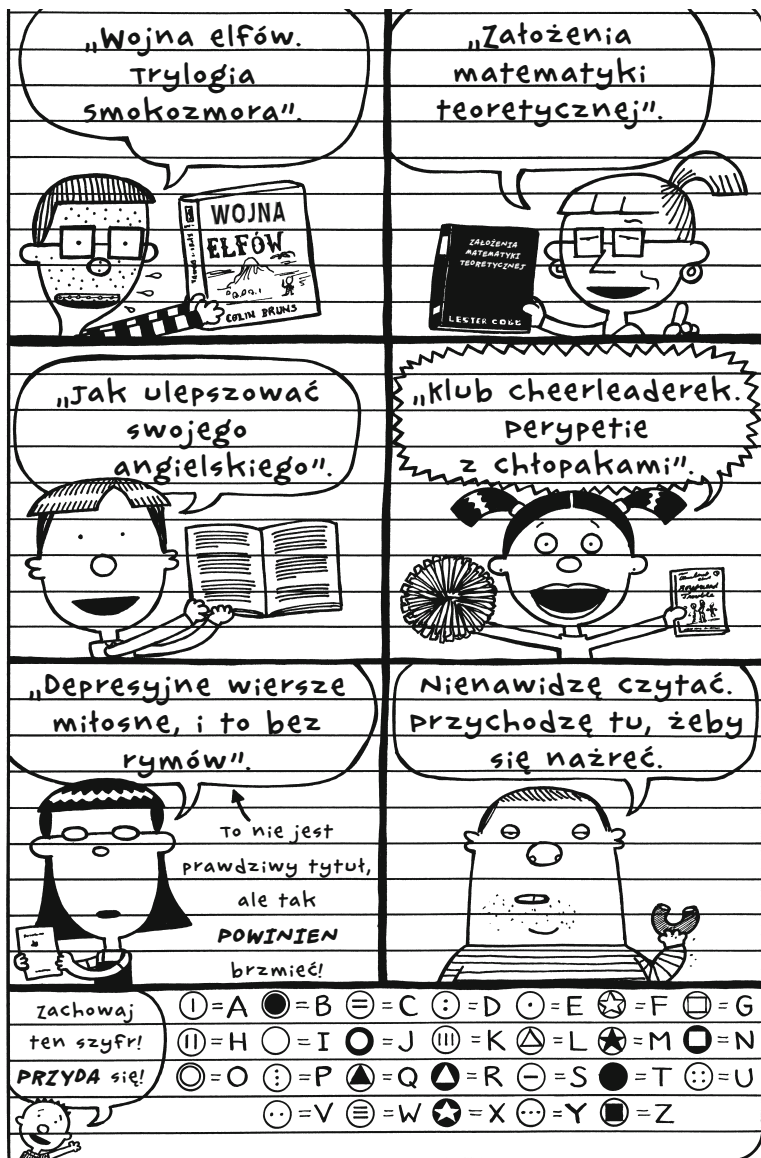 „Wojna elfów.
Trylogia
smokozmora”.
WOJNA
ELFÓW
COLIN BRUNS
„Założenia
matematyki
teoretycznej”.
ZAŁOŻENIA
MATEMATYKI
TEORETYCZNEJ
LESTER COBE
„Jak ulepszować
swojego
angielskiego”.
„Klub cheerleaderek.
Perypetie
z chłopakami”.
„Depresyjne wiersze
miłosne, i to bez
rymów”.
To nie jest
prawdziwy tytuł,
ale tak
POWINIEN
brzmieć!
Nienawidzę czytać.
Przychodzę tu, żeby
się nażreć.
Zachowaj
ten szyfr!
PRZYDA się!
=A =B =C =D =E =F =G
=H =I =J =K =L =M =N
=O =P =Q =R =S =T =U
=V =W =X =Y =Z